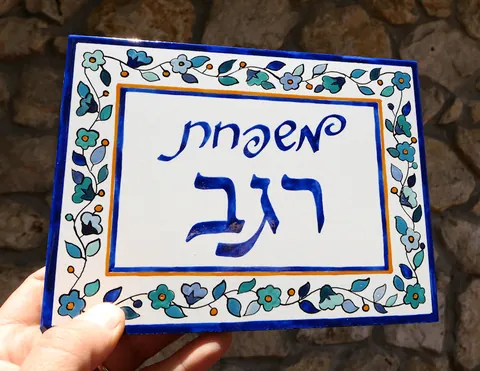 משפחת
רגב